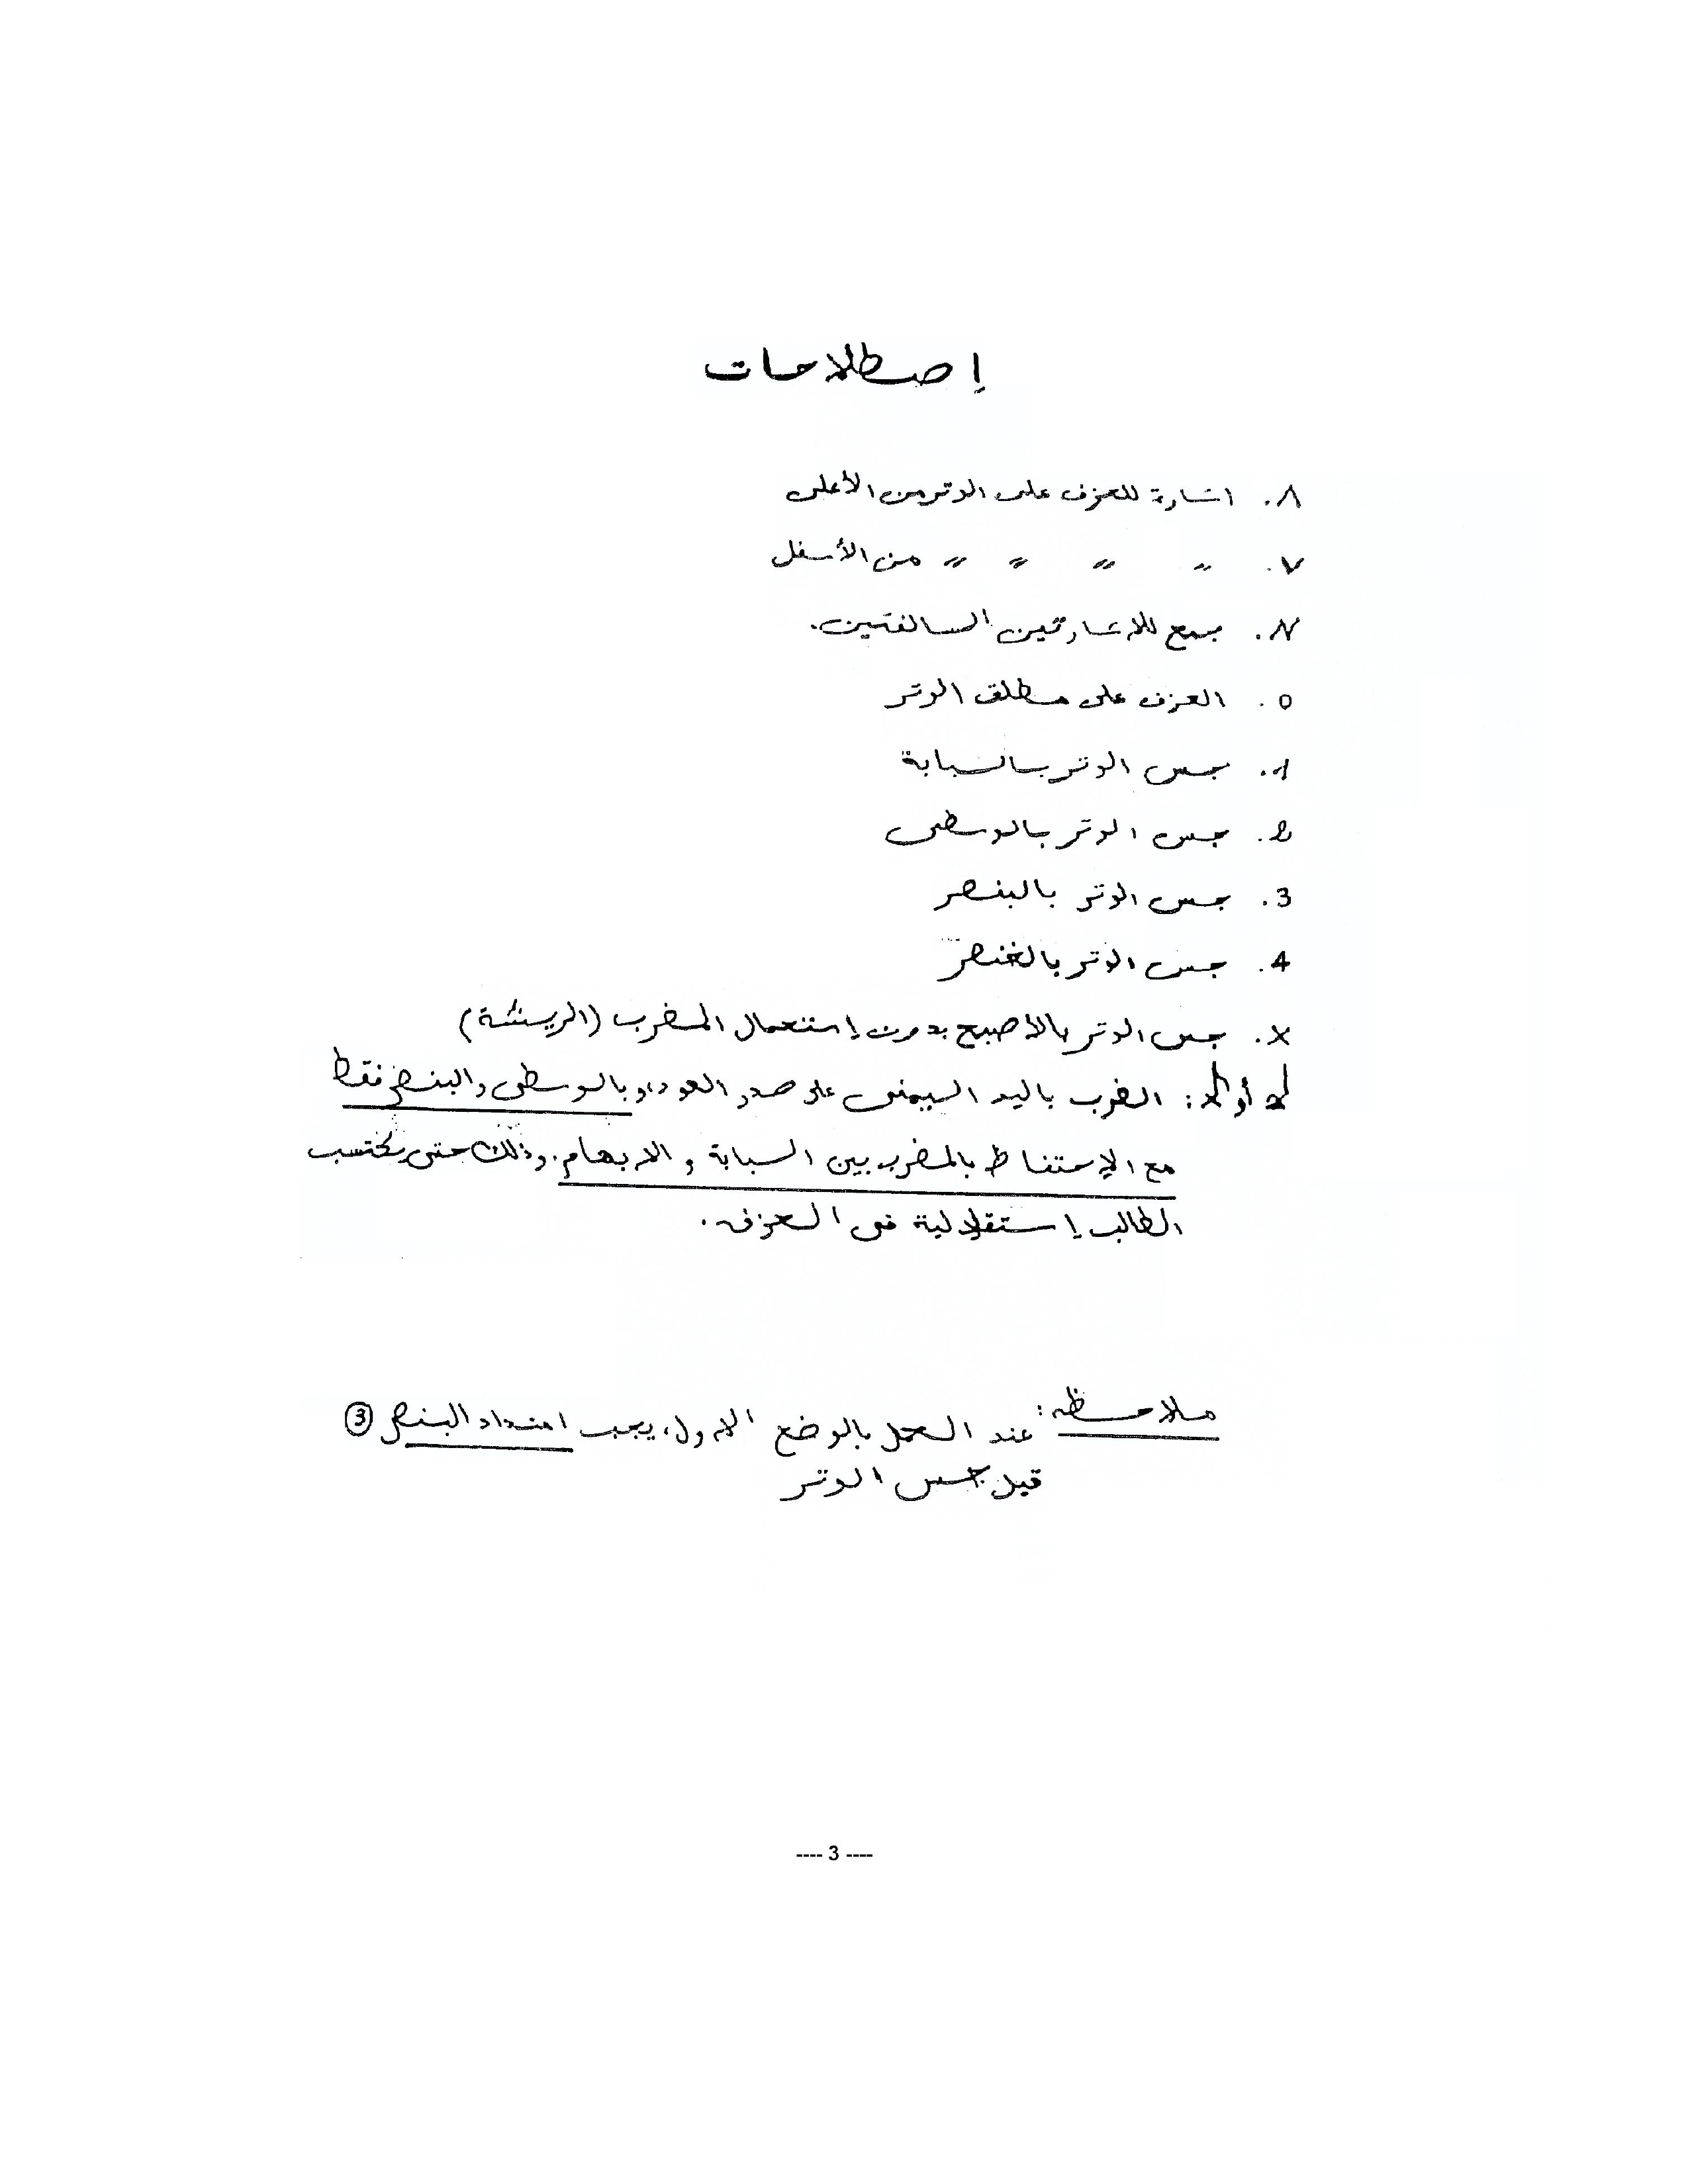 إصطلاحات
٨. اشارة للعزف على الوتر من الأعلى
V. 〃 〃 〃 〃 من الأسفل
N. جمع للاشارتين السالفتين.
o. العزف على مطلق الوتر
1. جس الوتر بالسبابة
2. جس الوتر بالوسطى
3. جس الوتر بالبنصر
4. جس الوتر بالخنصر
x. جس الوتر بالاصبع بدون إستعمال المضرب (الريشة)
أو : الضرب باليد اليمنى على صدر العود، او بالوسطى والبنصر فقط
مع الإحتفاظ بالمضرب بين السبابة والابهام. وذلك حتى يكتسب
الطالب إستقلالية فى العزف.
ملاحظه: عند العمل بالوضع الاول، يجب امتداد البنصر ③
قبل جس الوتر
---- 3 ----